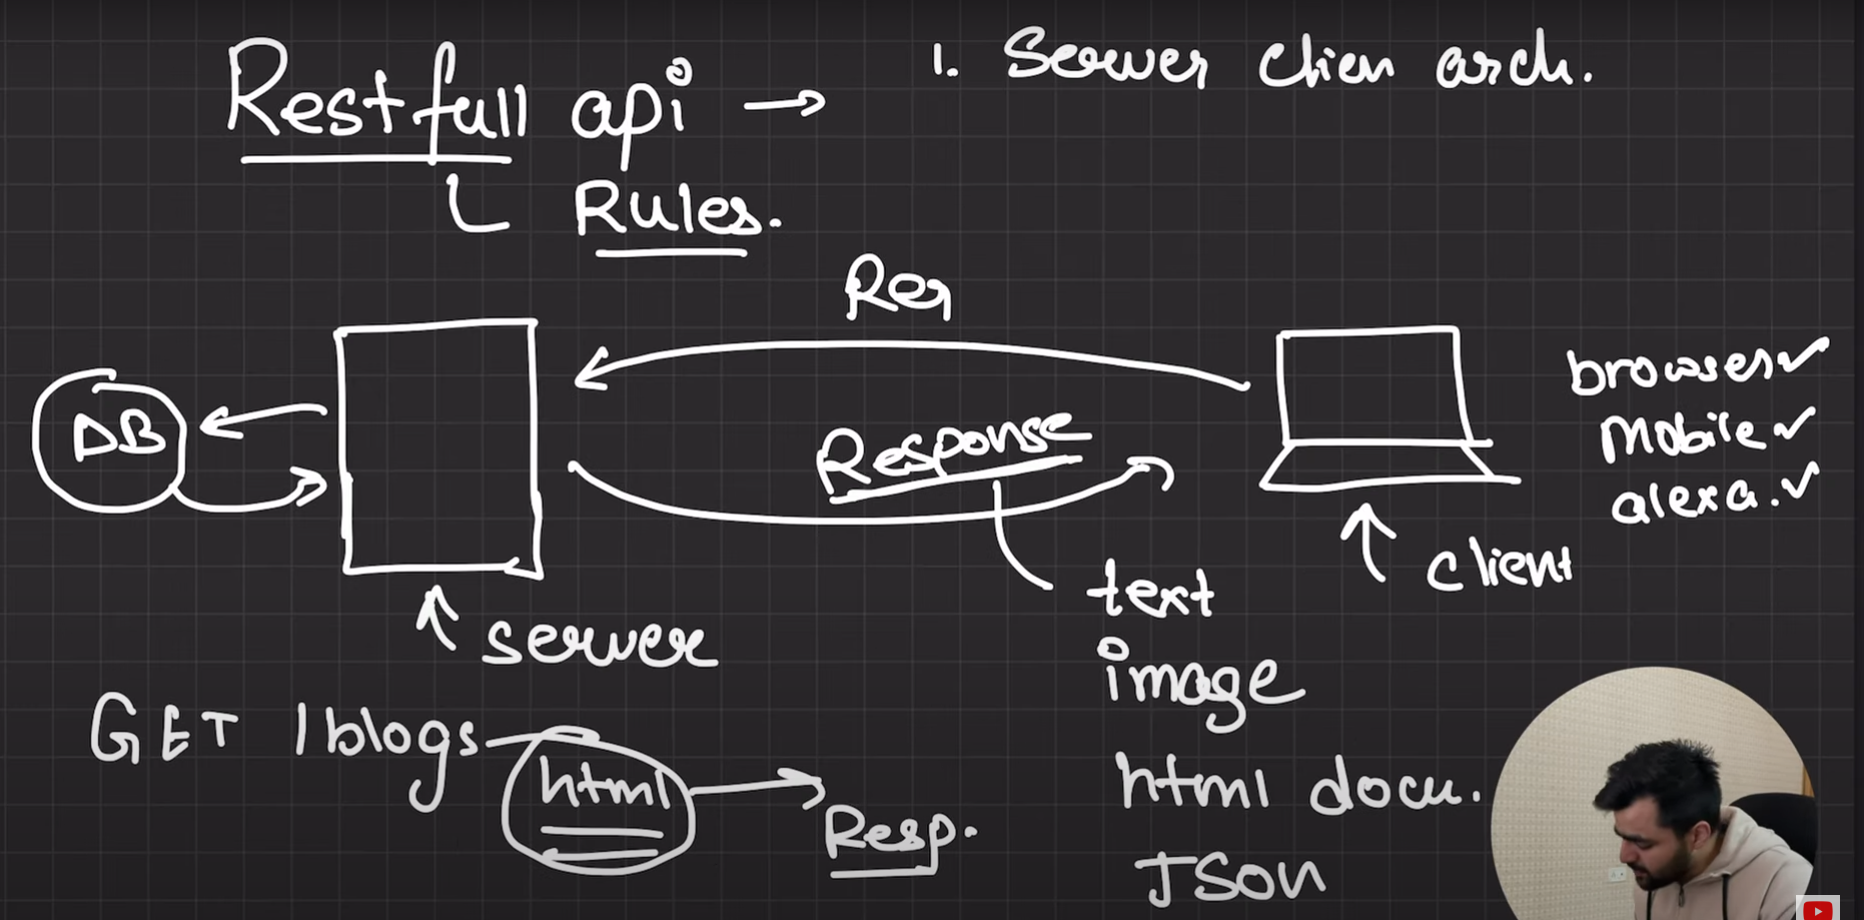 Restfull api →
1. Server clien arch.
Rules.
Req
DB
Response
browser✓
Mobile✓
alexa.✓
client
server
text
image
html docu.
JSon
GET /blogs
html
Resp.